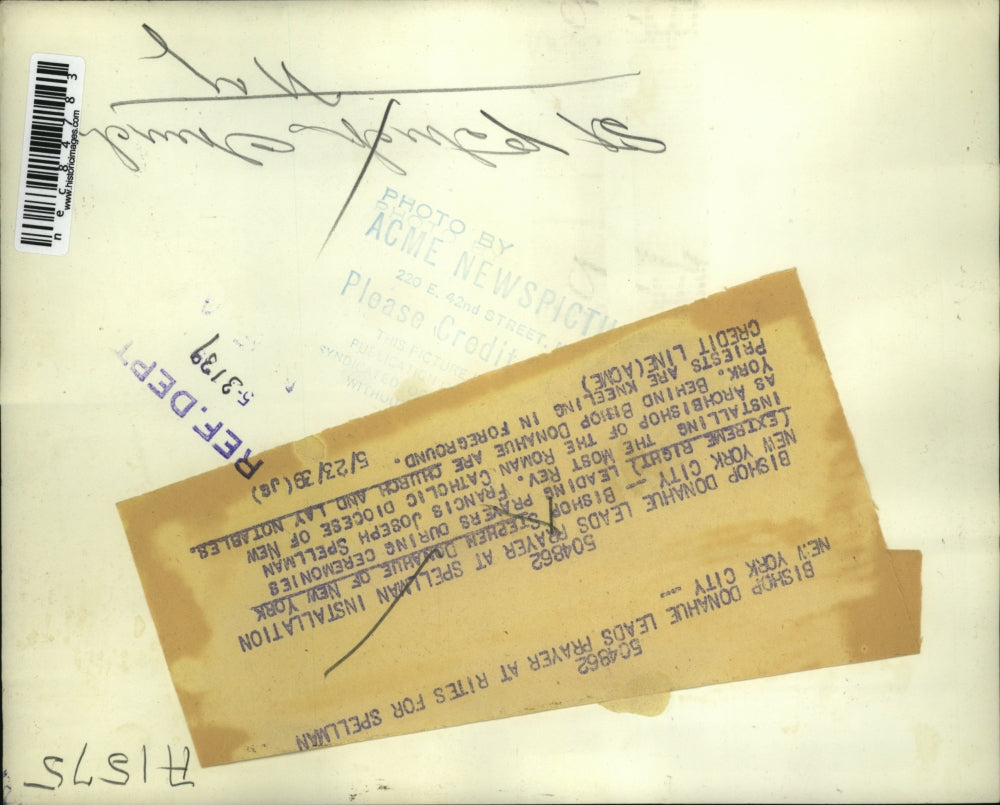 N.Y.
St. Patrick's Church
n e c 8 4 7 8 3
www.historicimages.com
PHOTO BY
ACME NEWSPICTU
220 E. 42nd STREET,
Please Credit
THIS PICTURE
REF. DEPT
5-3139
504962
BISHOP DONAHUE LEADS PRAYER AT RITES FOR SPELLMAN
NEW YORK CITY --
504962
BISHOP DONAHUE LEADS PRAYER AT SPELLMAN INSTALLATION
NEW YORK CITY -- BISHOP STEPHEN DONAHUE OF NEW YORK
(EXTREME RIGHT) LEADING PRAYERS DURING CEREMONIES
INSTALLING THE MOST REV. FRANCIS JOSEPH SPELLMAN
AS ARCHBISHOP OF THE ROMAN CATHOLIC DIOCESE OF NEW
YORK. BEHIND BISHOP DONAHUE ARE CHURCH AND LAY NOTABLES.
PRIESTS ARE KNEELING IN FOREGROUND.
CREDIT LINE(ACME) 5/23/39(JG)
A1575